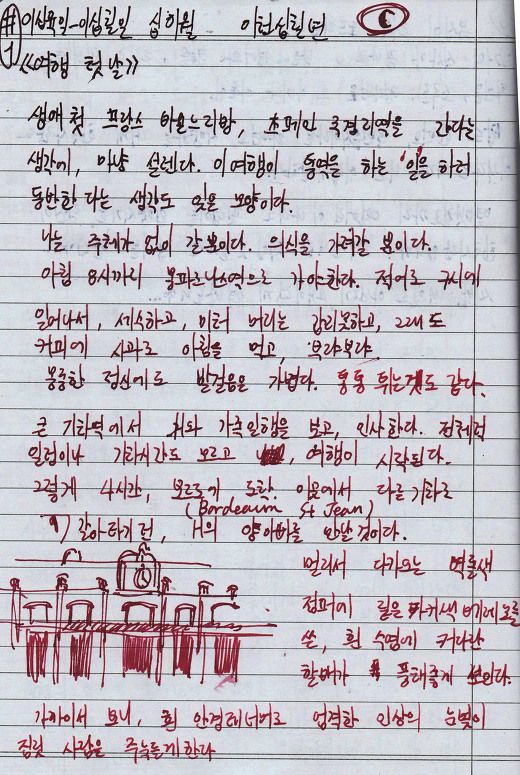 #1 이십육일-이십칠일 십이월 이천십칠년 ⓒ
《여행 첫날》
생애 첫 프랑스 바욘느리방, 스페인 국경지역을 간다는
생각에, 마냥 설렌다. 이 여행이 통역을 하는 '일'을 하러
동반한다는 생각도 잊은 모양이다.
나는 주체가 없이 갈 뿐이다. 의식을 가져갈 뿐이다.
아침 8시까지 몽파르나스역으로 가야한다. 적어도 6시에
일어나서, 세수하고, 미처 머리는 감지못하고, 그래도
커피에 사과로 아침을 먹고, 부랴부랴
몽롱한 정신에도 발걸음은 가볍다. 통통 튀는것도 같다.
큰 기차역에서 H와 가족일행을 보고, 인사한다. 전체적
일정이나 기차시간도 모르고, 여행이 시작된다.
그렇게 4시간, 보르도에 도착. 이곳에서 다른 기차로
(Bordeaux St Jean)
갈아타기 전, H의 양아버를 만날것이다.
멀리서 다가오는 벽돌색
점퍼에 짙은 베레모를
쓴, 흰 수염에 커다란
할배가 풍태좋게 보인다.
가까이서 보니, 흰 안경테너머로 엄격한 인상의 눈빛이
짐짓 사람을 주눅들게한다